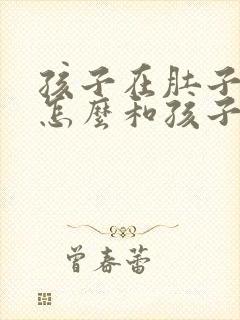 孩子在肚子
怎麼和孩子
曾春蕾